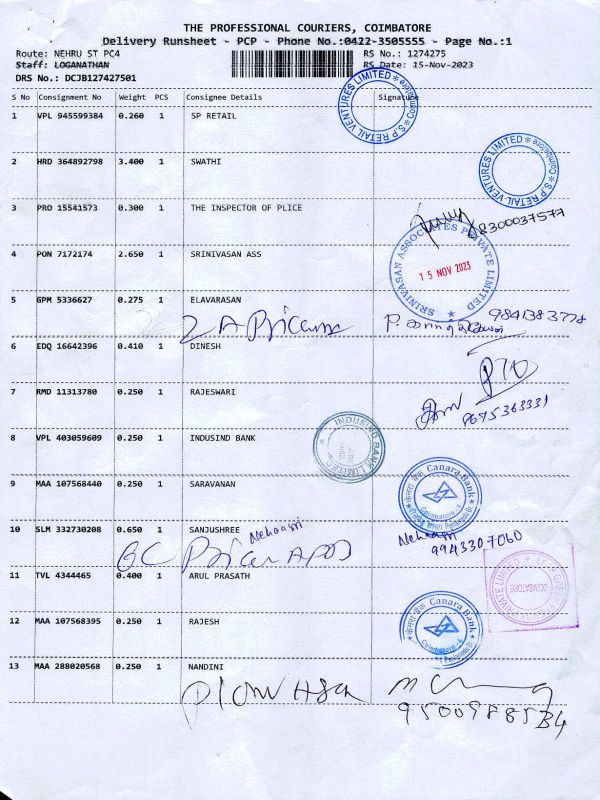 THE PROFESSIONAL COURIERS, COIMBATORE
Delivery Runsheet - PCP - Phone No.:0422-3505555 - Page No.:1
Route: NEHRU ST PC4 RS No.: 1274275
Staff: LOGANATHAN RS Date: 15-Nov-2023
DRS No.: DCJB127427501
S No Consignment No Weight PCS Consignee Details Signature
1 VPL 945599384 0.260 1 SP RETAIL
S.P RETAIL VENTURES LIMITED * Coimbatore *
2 HRD 364892798 3.400 1 SWATHI
S.P RETAIL VENTURES LIMITED * Coimbatore *
3 PRO 15541573 0.300 1 THE INSPECTOR OF PLICE
8300037577
4 PON 7172174 2.650 1 SRINIVASAN ASS
SRINIVASAN ASSOCIATES PRIVATE LIMITED
15 NOV 2023
5 GPM 5336627 0.275 1 ELAVARASAN
9841383778
6 EDQ 16642396 0.410 1 DINESH
7 RMD 11313780 0.250 1 RAJESWARI
8675363331
8 VPL 403059609 0.250 1 INDUSIND BANK
INDUSIND BANK LIMITED
9 MAA 107568440 0.250 1 SARAVANAN
केनरा बैंक Canara Bank
Coimbatore
10 SLM 332730208 0.650 1 SANJUSHREE
9943307060
11 TVL 4344465 0.400 1 ARUL PRASATH
PRIVATE LIMITED
COIMBATORE
12 MAA 107568395 0.250 1 RAJESH
केनरा बैंक Canara Bank
Coimbatore
13 MAA 288020568 0.250 1 NANDINI